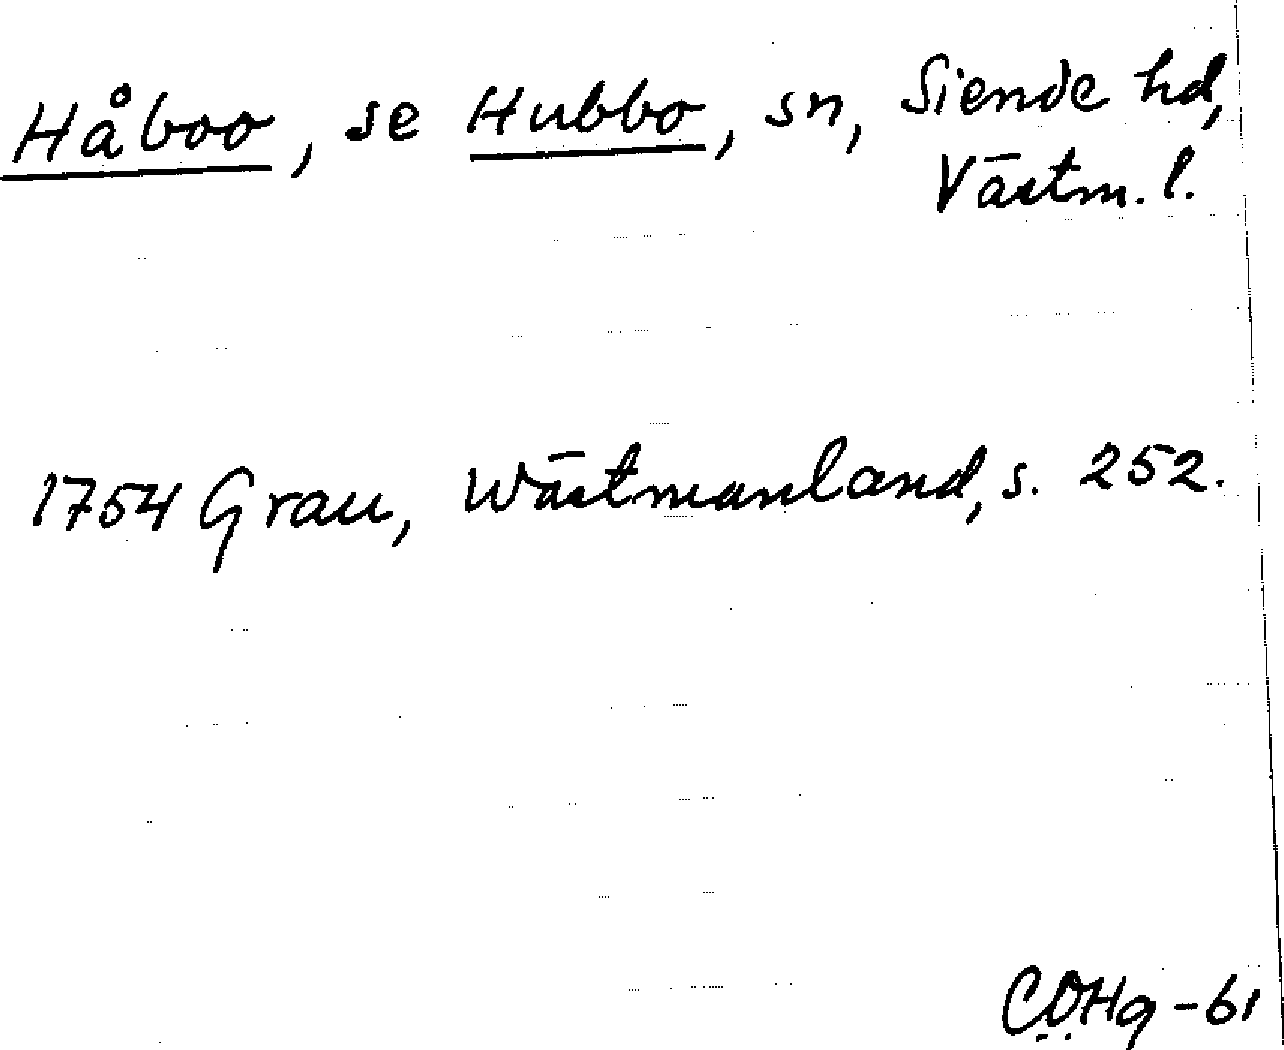 Håboo, se Hubbo, sn, Siende hd,
Västm. l.
1754 Grau, Wästmanland, s. 252.
CÖHg -61